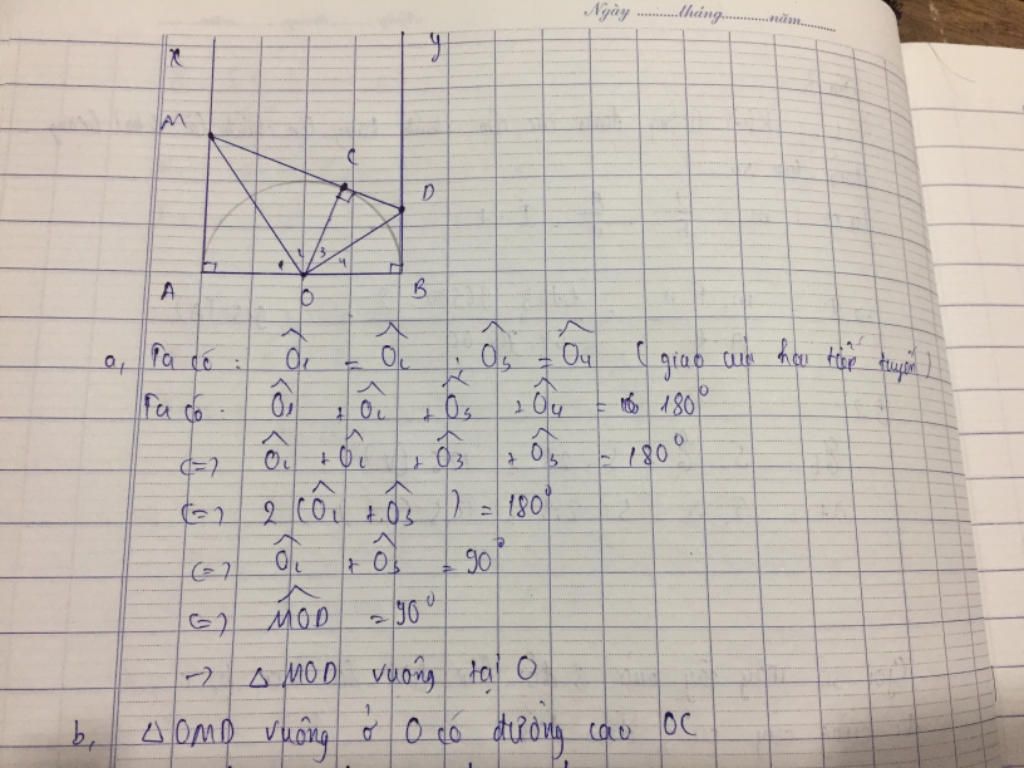 Ngày ..........tháng............năm..........
x
y
M
C
D
2 3
1 4
A
O
B
a, Ta có : Ô1 = Ô2 ; Ô3 = Ô4 ( giao của hai tiếp tuyến )
Ta có : Ô1 + Ô2 + Ô3 + Ô4 = 180°
<=> Ô2 + Ô2 + Ô3 + Ô3 = 180°
<=> 2 (Ô2 + Ô3 ) = 180°
<=> Ô2 + Ô3 = 90°
<=> M͡OD = 90°
-> △ MOD vuông tại O
b, △ OMD vuông ở O có đường cao OC